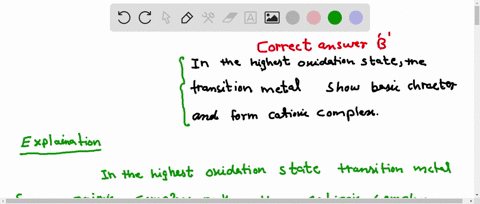 Correct answer 'B'
In the highest oxidation state, the
transition metal show basic chractor
and form cationic complex.
Explaination
In the highest oxidation state transition metal